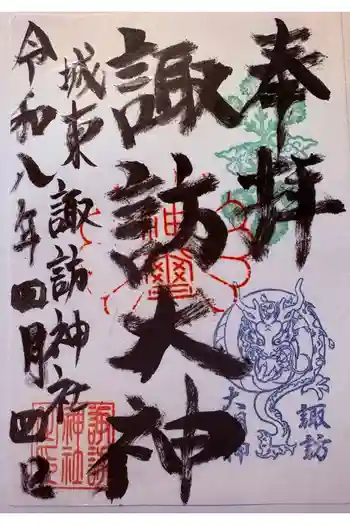 奉拝
諏訪大神
城東 諏訪神社
令和八年四月四日
諏訪
大明神
諏訪
神社